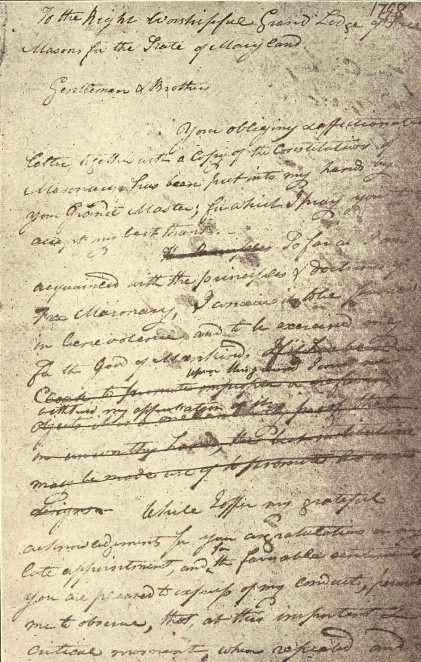 1798
To the Right Worshipful Grand Lodge of Free
Masons for the State of Maryland.
Gentlemen & Brothers
Your obliging & affectionate
letter together with a Copy of the Constitutions of
Masonry has been put into my hands by
your Grand Master; for which I pray you to
accept my best thanks.
So far as I am
acquainted with the principles & doctrines of
Free Masonry, I conceive it to be founded
in benevolence and to be exercised only
for the good of Mankind.
upon this ground
to promote
withdraw my approbation of
unworthy hands, the best institutions
may be made use of to promote the worst
designs
While I offer my grateful
acknowledgements for your congratulations on my
late appointment and for the favorable sentiments
you are pleased to express of my conduct, permit
me to observe, that at this important &
critical moment, when repeated and